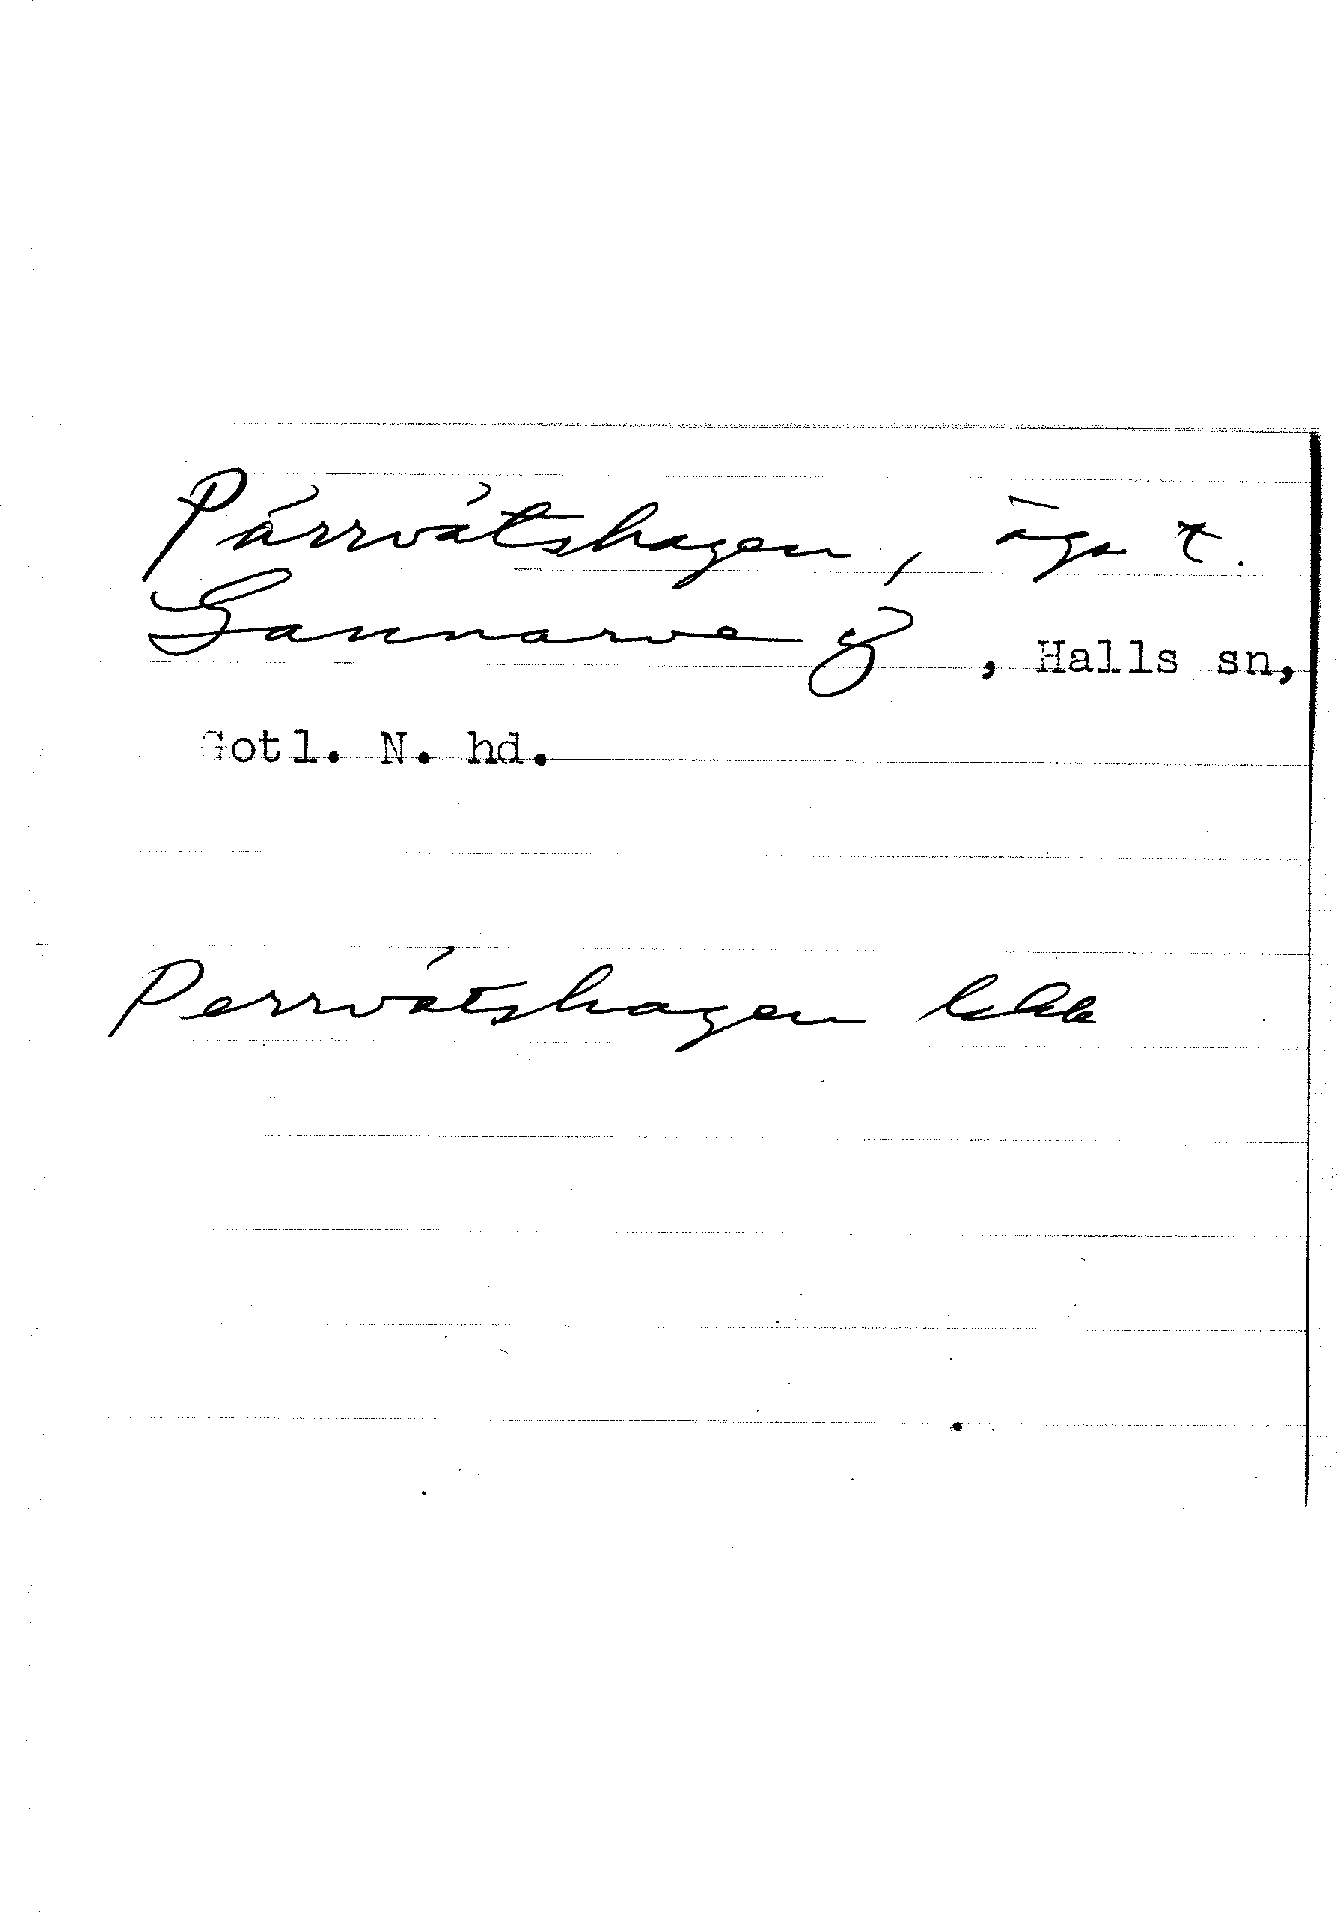 Pärrvátshagen, äga t.
Gannarve g, Halls sn,
Gotl. N. hd.
Perrvátshagen